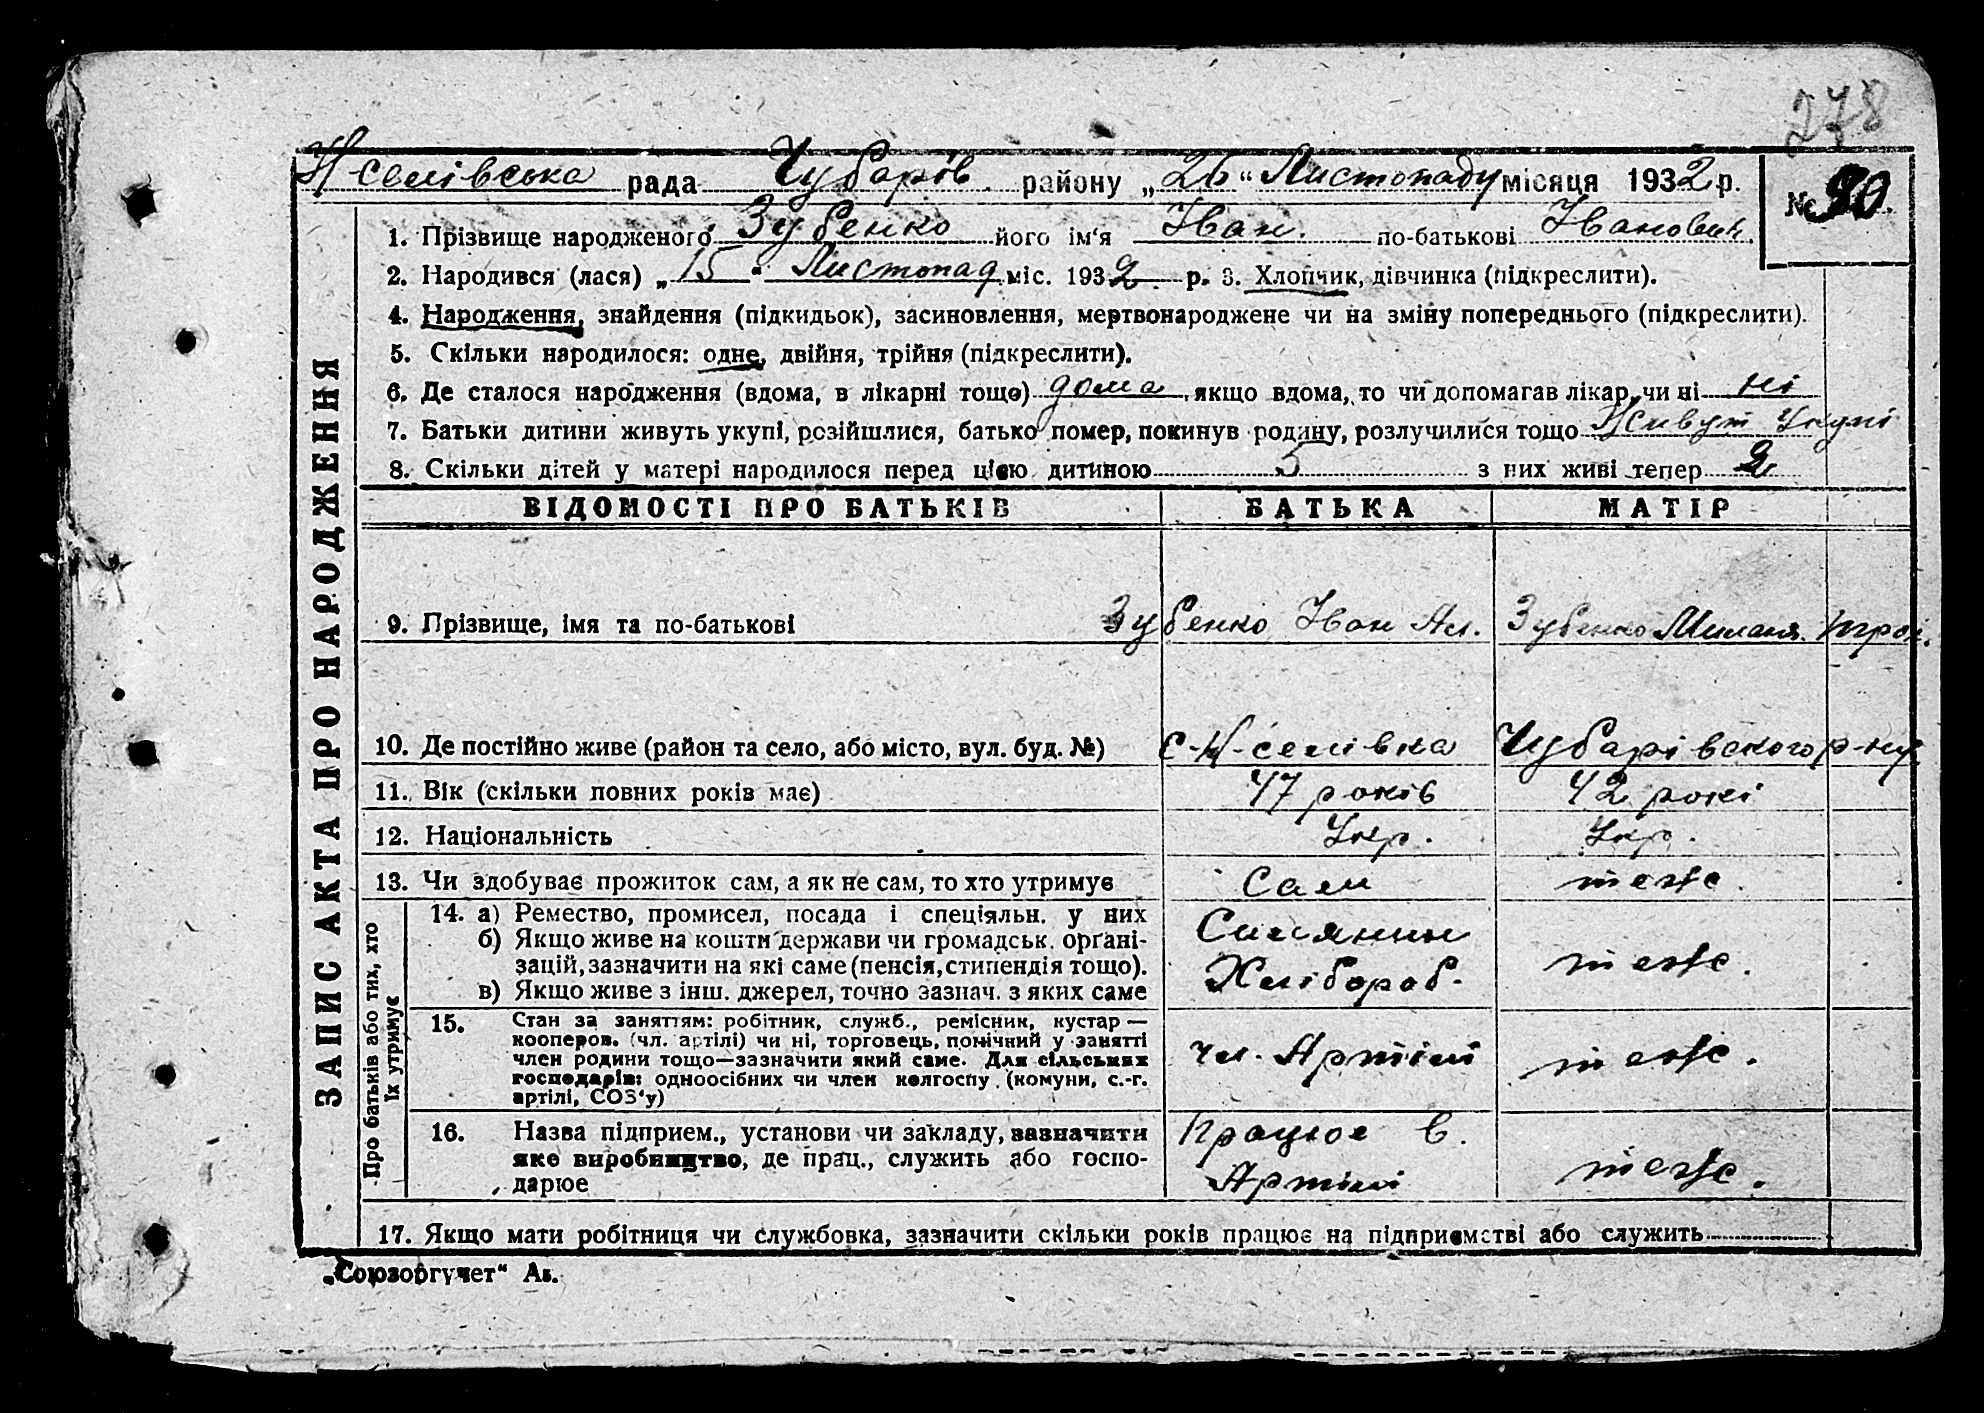 278
Н селівська рада Чубарів району „26“ Листопаду місяця 1932 р.
№ 90
1. Прізвище народженого Зубенко його ім'я Іван. по-батькові Іванович.
2. Народився (лася) „15“ Листопад міс. 1932 р. 3. Хлопчик, дівчинка (підкреслити).
4. Народження, знайдення (підкидьок), засиновлення, мертвонароджене чи на зміну попереднього (підкреслити).
5. Скільки народилося: одне, двійня, трійня (підкреслити).
6. Де сталося народження (вдома, в лікарні тощо) дома, якщо вдома, то чи допомагав лікар, чи ні ні
7. Батьки дитини живуть укупі, розійшлися, батько помер, покинув родину, розлучилися тощо Живут укупі
8. Скільки дітей у матері народилося перед цією дитиною 5 з них живі тепер 2
ЗАПИС АКТА ПРО НАРОДЖЕННЯ
ВІДОМОСТІ ПРО БАТЬКІВ БАТЬКА МАТІР
9. Прізвище, імя та по-батькові Зубенко Іван Ал. Зубенко Миланя.
10. Де постійно живе (район та село, або місто, вул. буд. №) с-Н-селівка Чубарівского р-ну.
11. Вік (скільки повних років має) 47 років 42 рокі
12. Національність Укр. Укр.
13. Чи здобуває прожиток сам, а як не сам, то хто утримує Сам теж.
Про батьків або тих, хто їх утримує
14. а) Ремество, промисел, посада і спеціяльн. у них Силянин
б) Якщо живе на кошти держави чи громадськ. органі-
зацій, зазначити на які саме (пенсія, стипендія тощо). Хлібороб. теж.
в) Якщо живе з інш. джерел, точно зазнач. з яких саме
15. Стан за заняттям: робітник, служб., ремісник, кустар —
кооперов. (чл. артілі) чи ні, торговець, помічний у занятті
член родини тощо—зазначити який саме. Для сільських чл. Артілі теж.
господарів: одноосібних чи член колгоспу (комуни, с.-г.
артілі, СОЗ'у)
16. Назва підприєм., установи чи закладу, зазначити Працюе в.
яке виробництво, де прац., служить або госпо- Артілі теж.
дарює
17. Якщо мати робітниця чи службовка, зазначити скільки років працює на підприємстві або служить
„Союзоргучет“